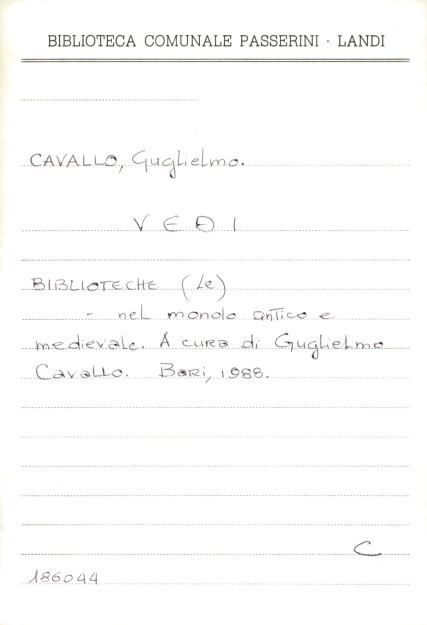 BIBLIOTECA COMUNALE PASSERINI - LANDI
CAVALLO, Guglielmo.
VEDI
BIBLIOTECHE (Le)
- nel mondo antico e
medievale. A cura di Guglielmo
Cavallo. Bari, 1988.
C
186044